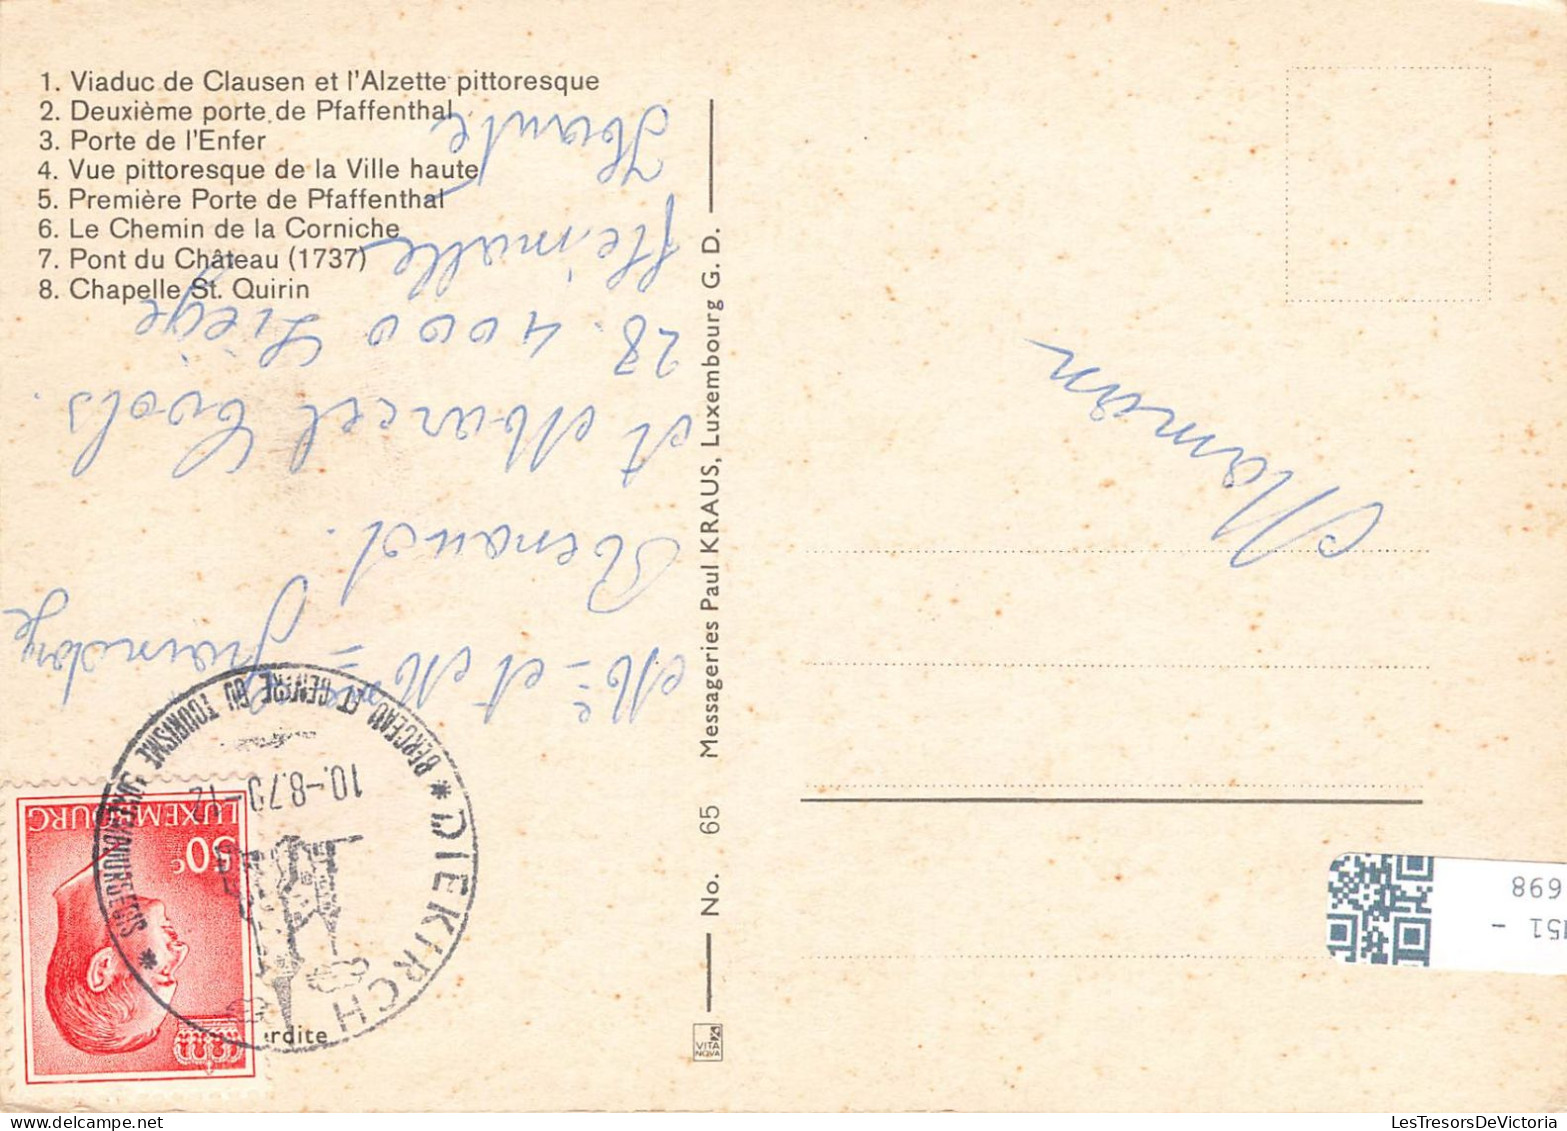 1. Viaduc de Clausen et l'Alzette pittoresque
2. Deuxième porte de Pfaffenthal
3. Porte de l'Enfer
4. Vue pittoresque de la Ville haute
5. Première Porte de Pfaffenthal
6. Le Chemin de la Corniche
7. Pont du Château (1737)
8. Chapelle St. Quirin
et
Renand.
Marcel Cools.
28. 4000 Liège
Maman
No. 65 Messageries Paul KRAUS, Luxembourg G. D.
VITA NOVA
rdite
* DIEKIRCH *
BERCEAU ET CENTRE DU TOURISME LUXEMBOURGEOIS
10.-8.70-12
LUXEMBOURG
50c
151 -
698
LesTresorsDeVictoria